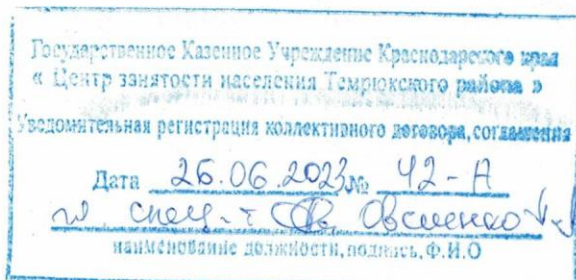 Государственное Казенное Учреждение Краснодарского края
« Центр занятости населения Темрюкского района »
Уведомительная регистрация коллективного договора, соглашения
Дата 26.06.2023 № 42-А
спец-т
наименование должности, подпись, Ф.И.О